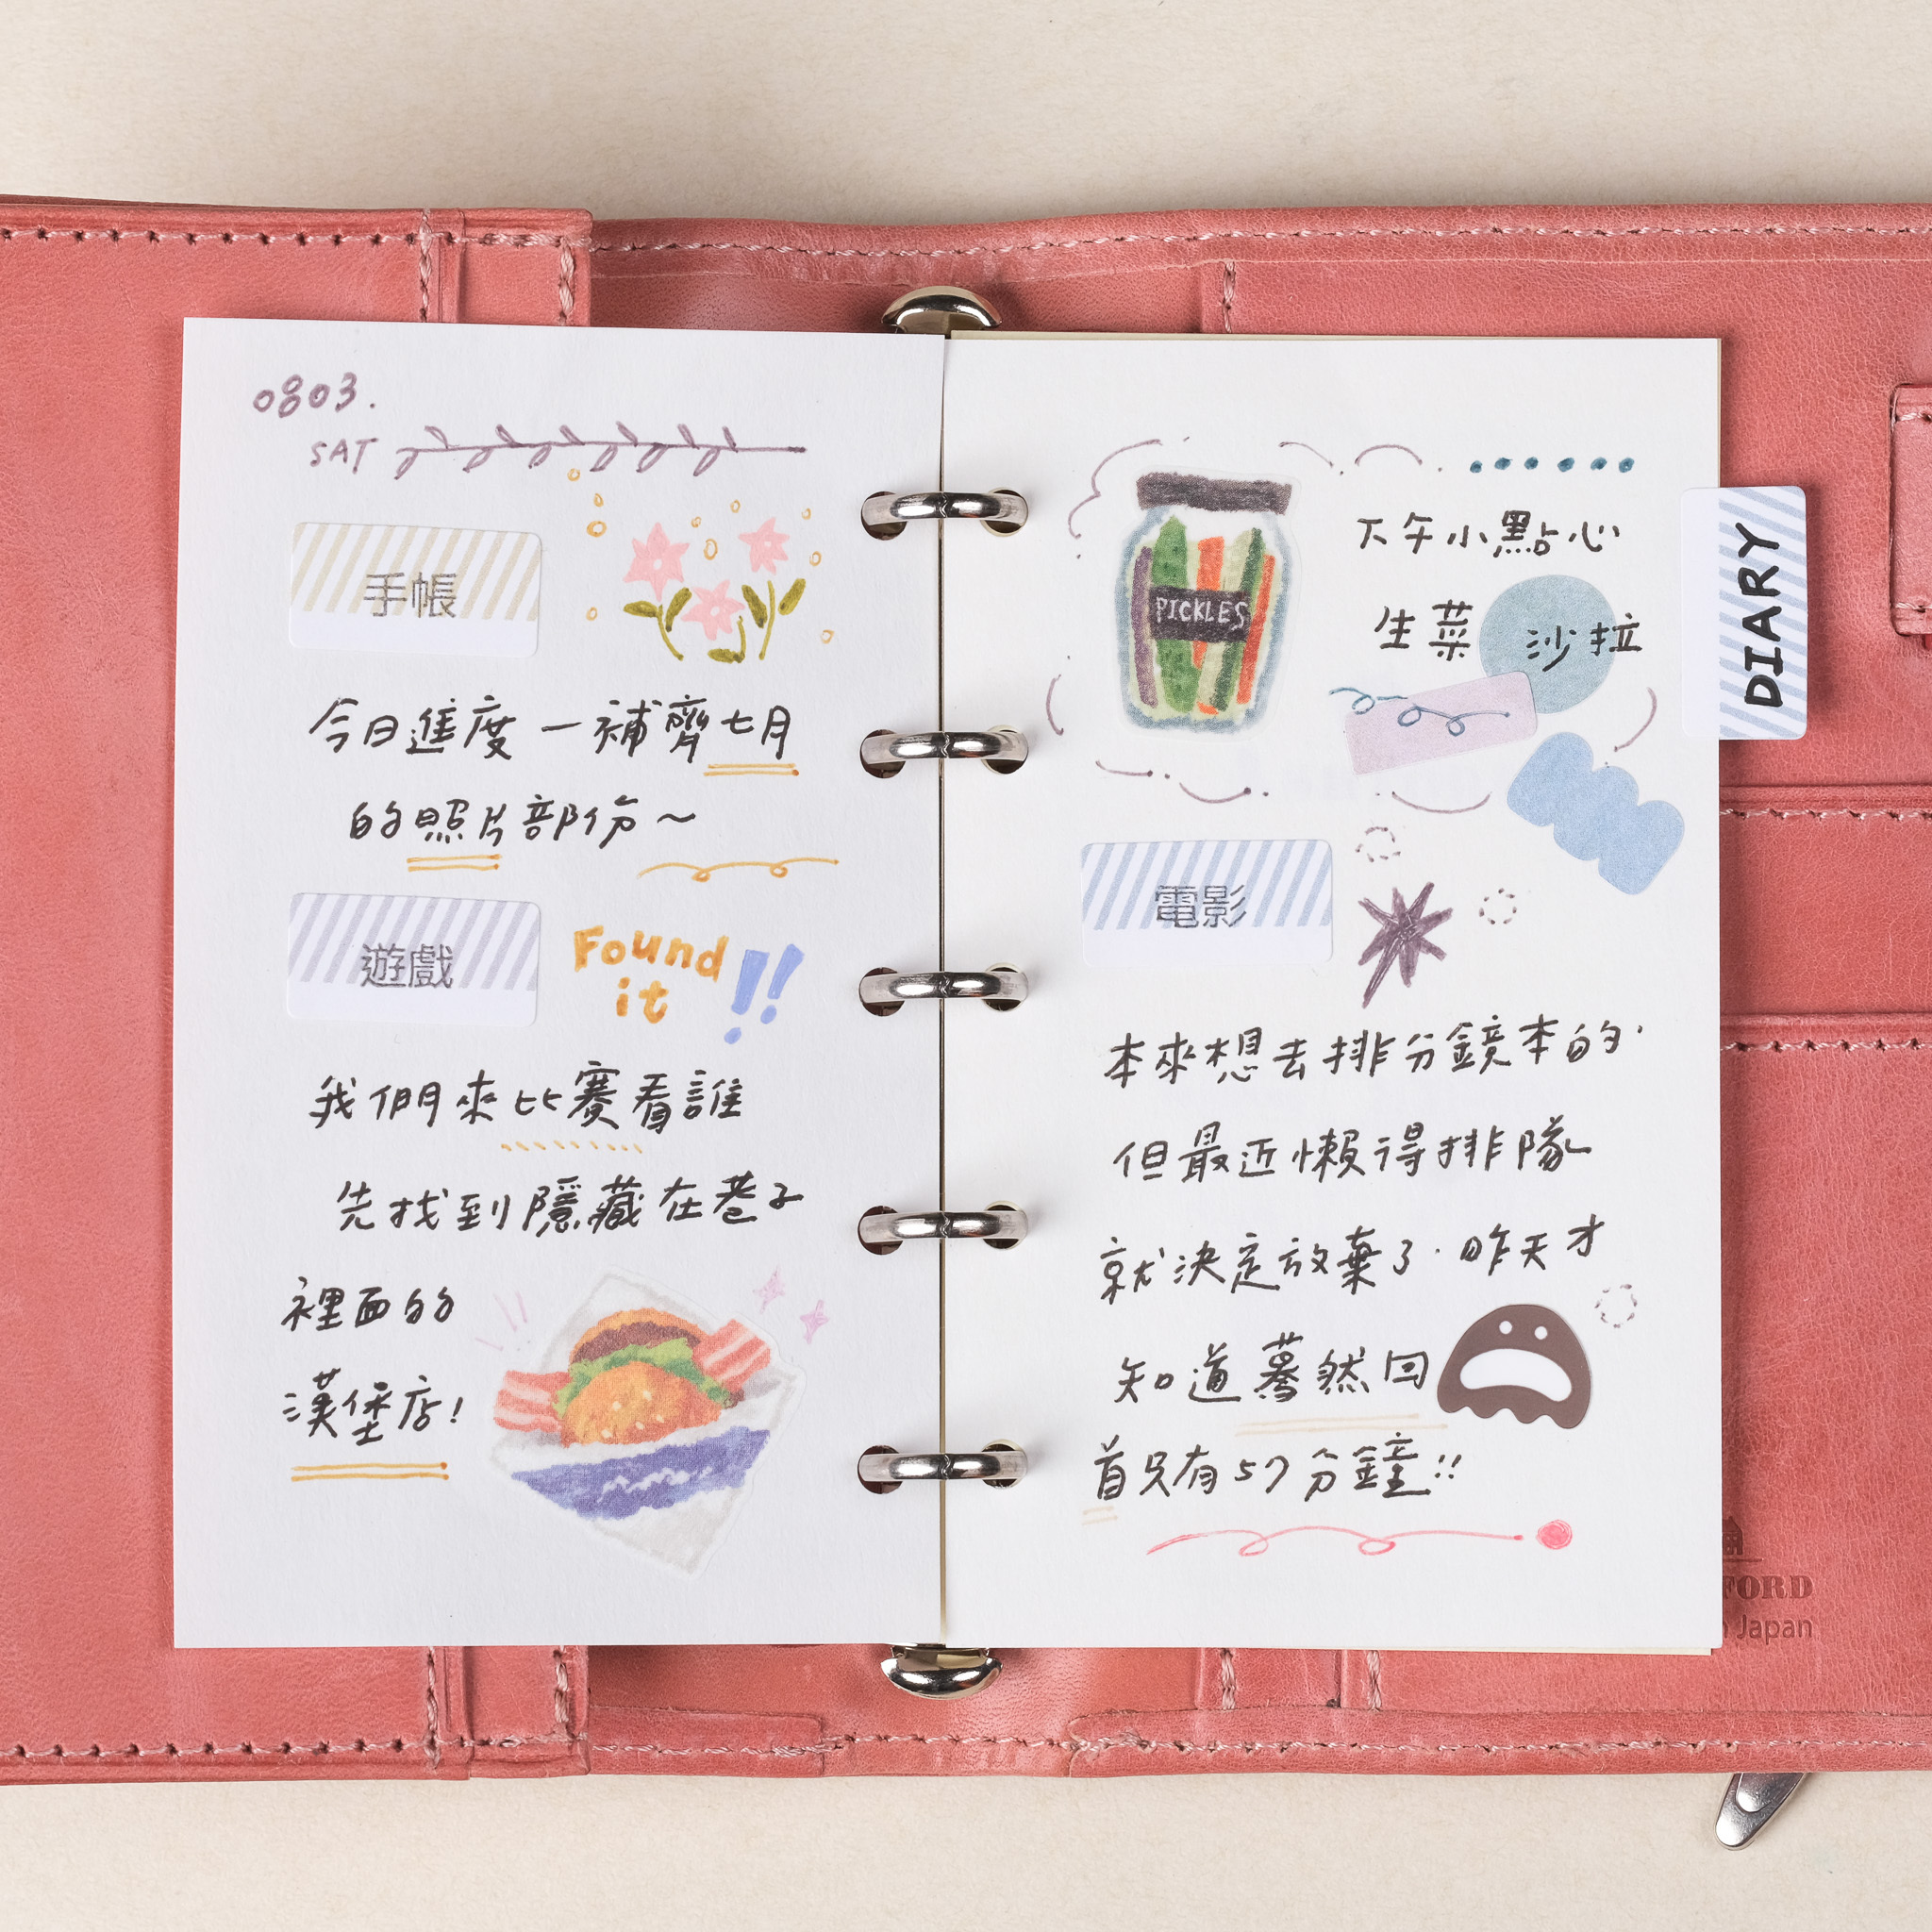 0803.
SAT
手帳
今日進度－補齊七月
的照片部份～
遊戲
Found
it !!
我們來比賽看誰
先找到隱藏在巷子
裡面的
漢堡店!
PICKLES
下午小點心
生菜 沙拉
DIARY
電影
本來想去排分鏡本的.
但最近懶得排隊
就決定放棄了.昨天才
知道驀然回
首只有57分鐘!!
FORD
Japan